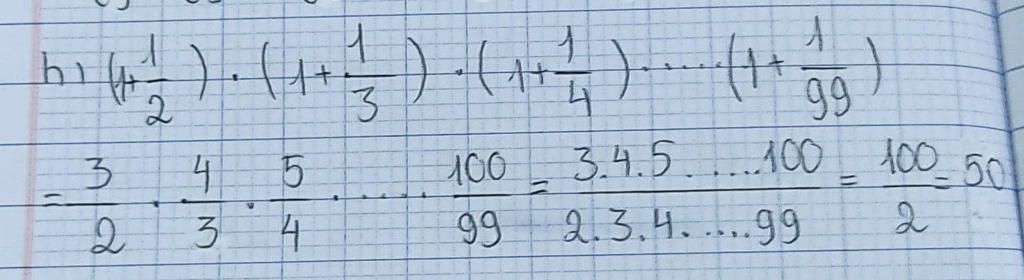 h) (1+1/2) . (1+1/3) . (1+1/4) ..... (1+1/99)
= 3/2 . 4/3 . 5/4 ..... 100/99 = 3.4.5.....100/2.3.4.....99 = 100/2 = 50